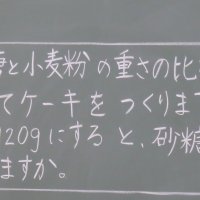 と小麦粉の重さの比
てケーキをつくりま
120gにすると、砂糖
ますか。